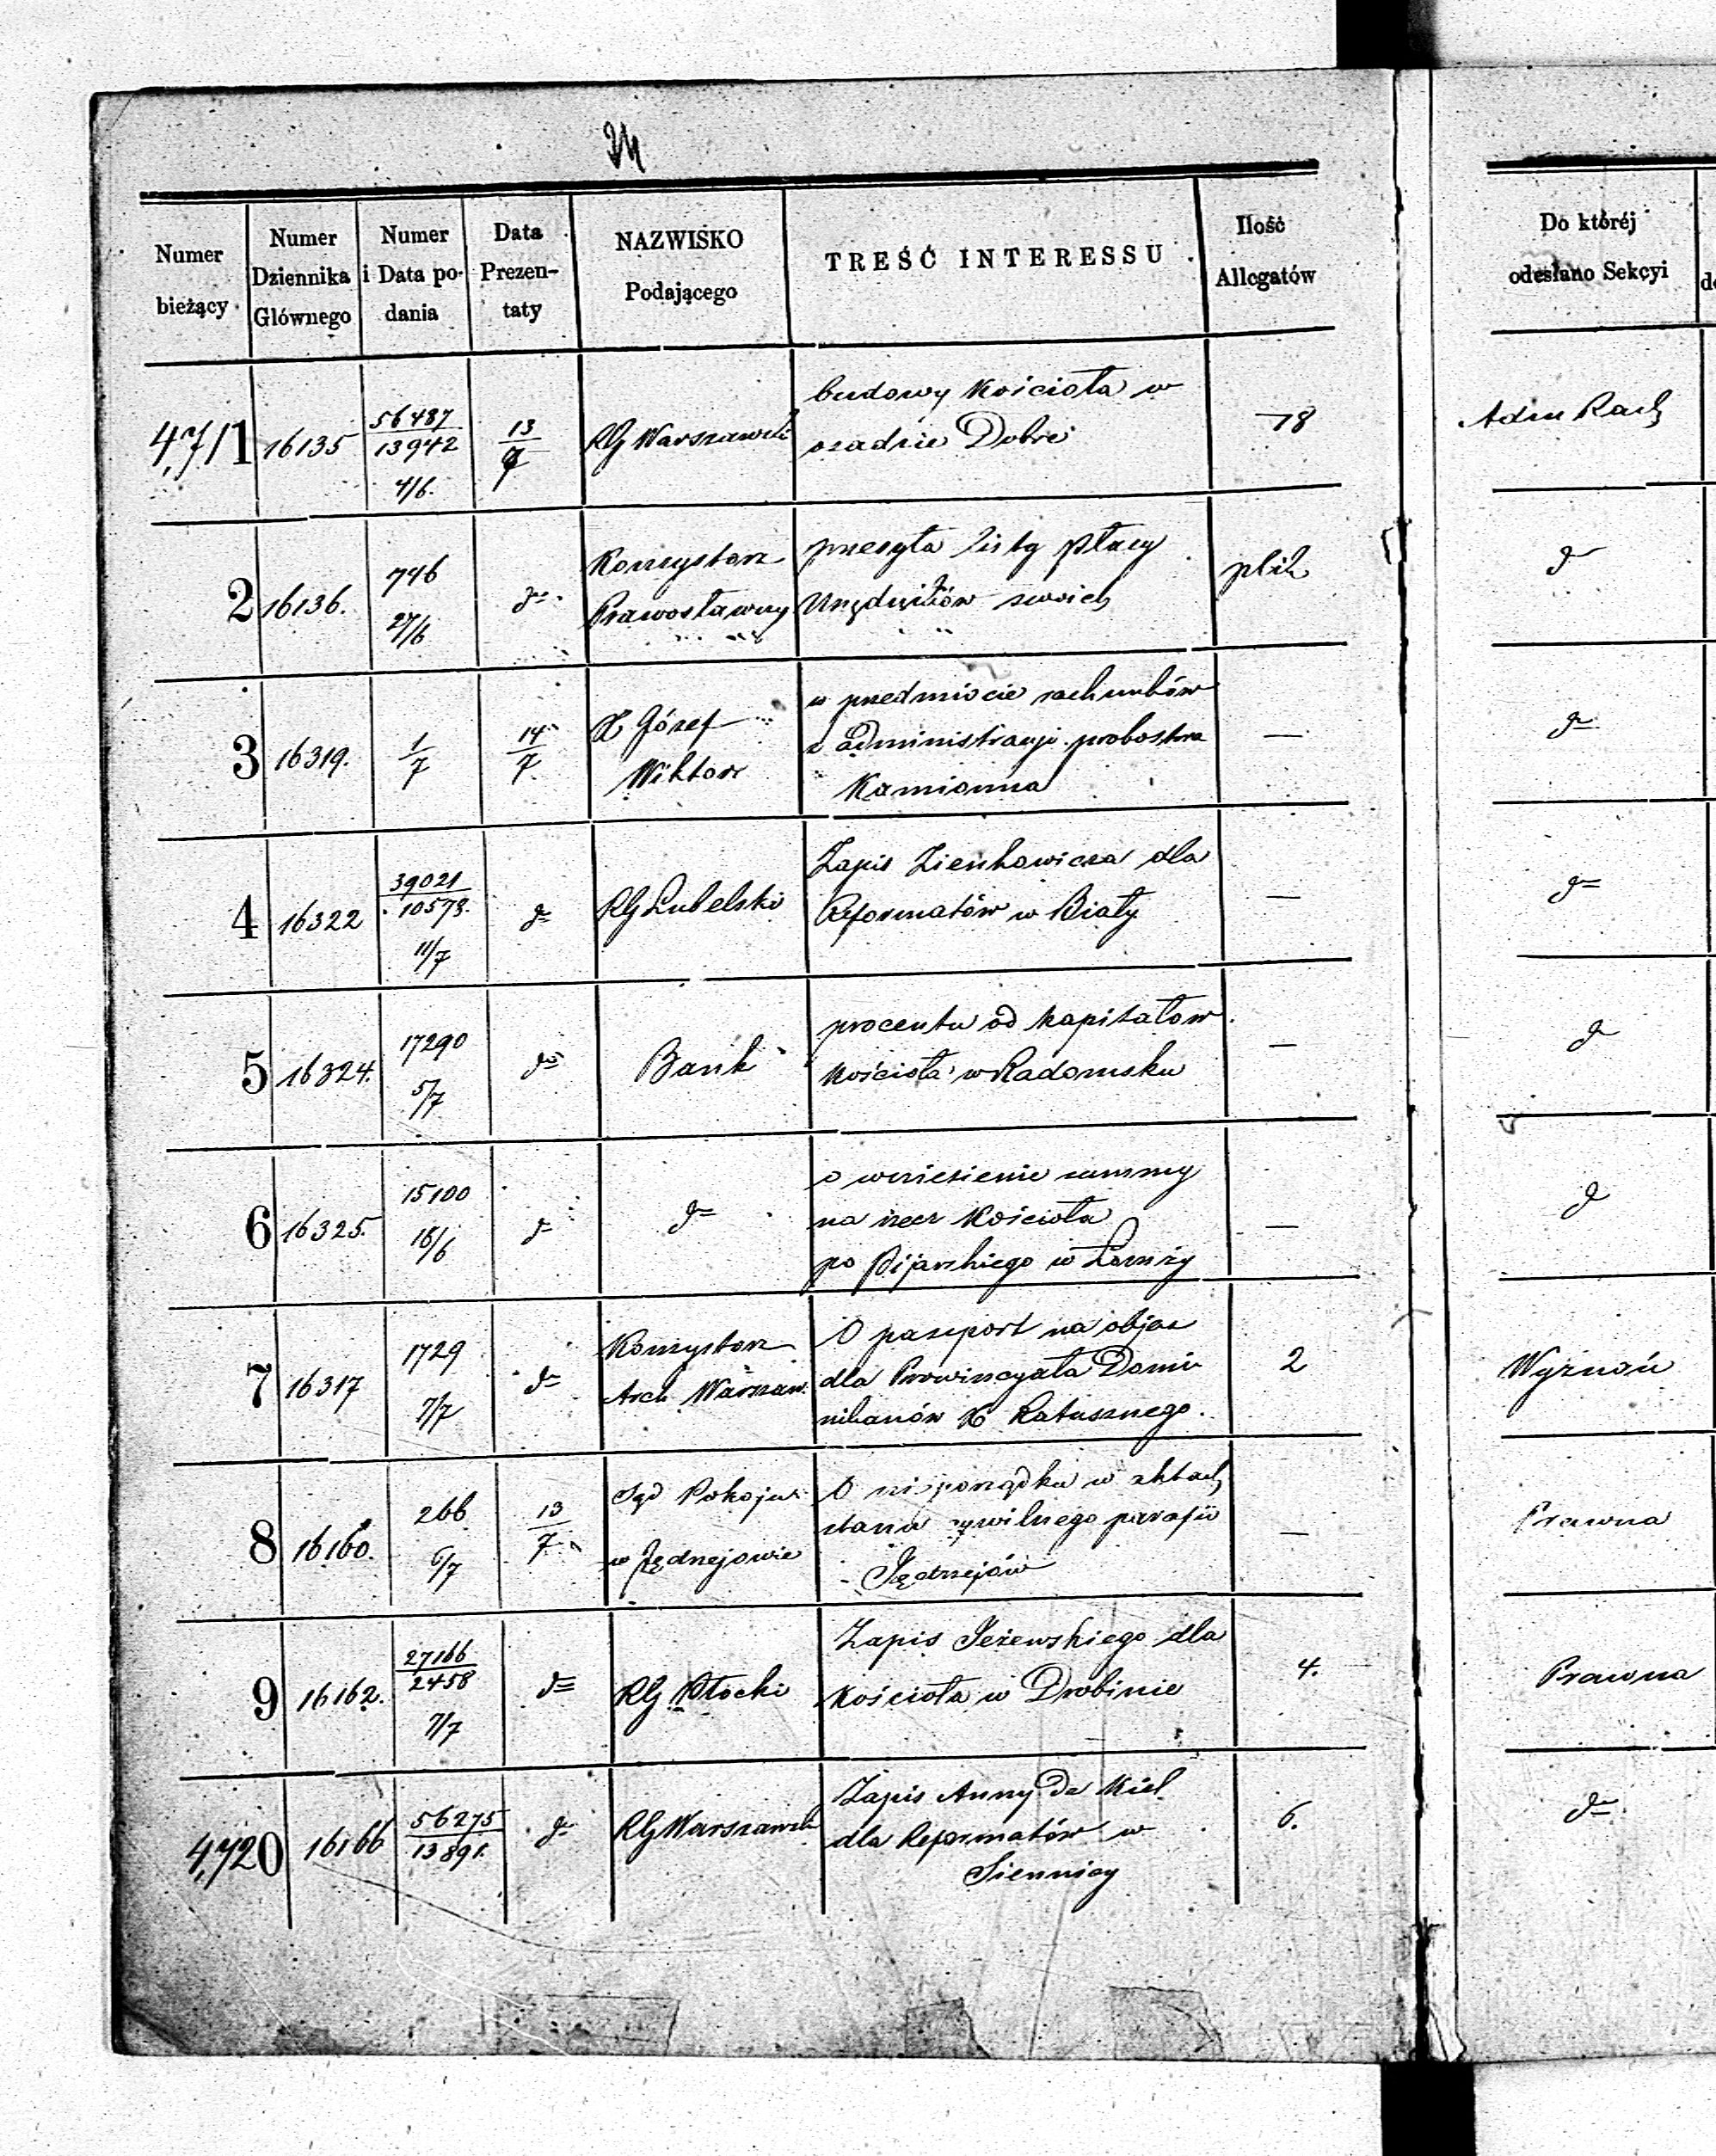 Numer bieżący
Numer Dziennika Głównego
Numer i Data podania
Data Prezentaty
NAZWISKO Podającego
TREŚĆ INTERESSU
Ilość Allegatów
Do któréj odesłano Sekcyi
47/1 16135 56487/13942 4/6. 13/7 RG Warszawski
budowy Kościoła w
osadzie Dobre
78 Adm Rach
2 16136. 746 27/6 do
Konsystorz
Prawosławny
przesyła listy płacy
Urzędników swoich
plik do
3 16319. 1/7 14/7
X Józef
Wiktor
w przedmiocie rachunków
z administracyi probostwa
Kamionna
— do
4 16322 39021/10573. 11/7 do RG Lubelski
Zapis Zienkowicza dla
Reformatów w Biały
— do
5 16324. 17290 5/7 do Bank
procentu od kapitałow
Kościoła w Radomsku
— do
6 16325. 15100 16/6 do do
o wniesienie summy
na rzecz Kościoła
po Pijarskiego w Łomży
— do
7 16317 1729 7/7 do
Konsystorz
Arch. Warszaw.
O paszport na objaz
dla Prowincyała Domi
nikanów X Ratusznego.
2 Wyznań
8 16160. 266 6/7 13/7
Sąd Pokoju
w Jędrzejowie
O nieporządku w aktach
stanu cywilnego parafii
Jędrzejów
— Prawna
9 16162. 27166/2458 7/7 do RG Płocki
Zapis Jeżewskiego dla
Kościoła w Drobinie
4. Prawna
4,720 16166 56275/13891. do RG Warszawski
Zapis Anny De Kiel
dla Reformatów w
Siennicy
6. do